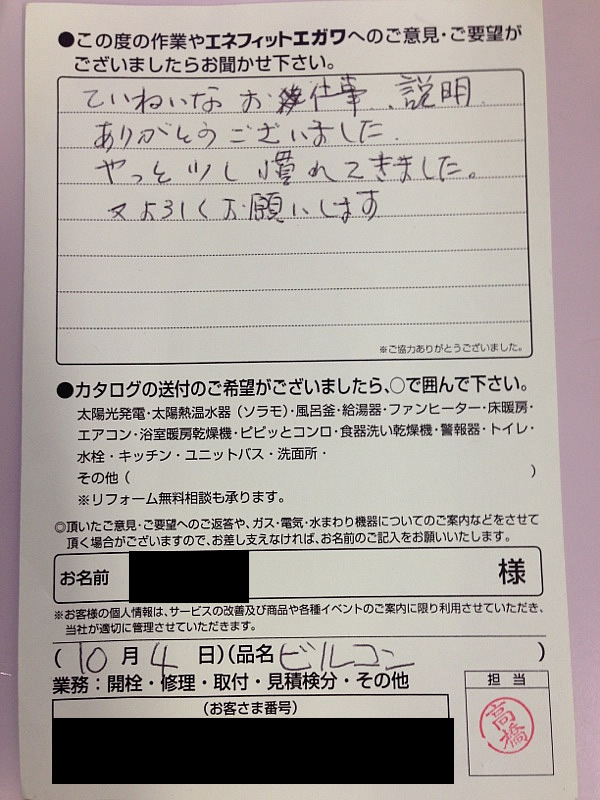 ●この度の作業やエネフィットエガワへのご意見・ご要望が
ございましたらお聞かせ下さい。
ていねいな お仕事、説明
ありがとうございました.
やっと少し慣れてきました。
又よろしくお願いします
※ご協力ありがとうございました。
●カタログの送付のご希望がございましたら、○で囲んで下さい。
太陽光発電・太陽熱温水器（ソラモ）・風呂釜・給湯器・ファンヒーター・床暖房・
エアコン・浴室暖房乾燥機・ピピッとコンロ・食器洗い乾燥機・警報器・トイレ・
水栓・キッチン・ユニットバス・洗面所・
その他（ ）
※リフォーム無料相談も承ります。
◎頂いたご意見・ご要望へのご返答や、ガス・電気・水まわり機器についてのご案内などをさせて
頂く場合がございますので、お差し支えなければ、お名前のご記入をお願いいたします。
お名前 様
※お客様の個人情報は、サービスの改善及び商品や各種イベントのご案内に限り利用させていただき、
当社が適切に管理させていただきます。
（10月4日）（品名 ビルコン ）
業務：開栓・修理・取付・見積検分・その他
担当
（お客さま番号）
高橋